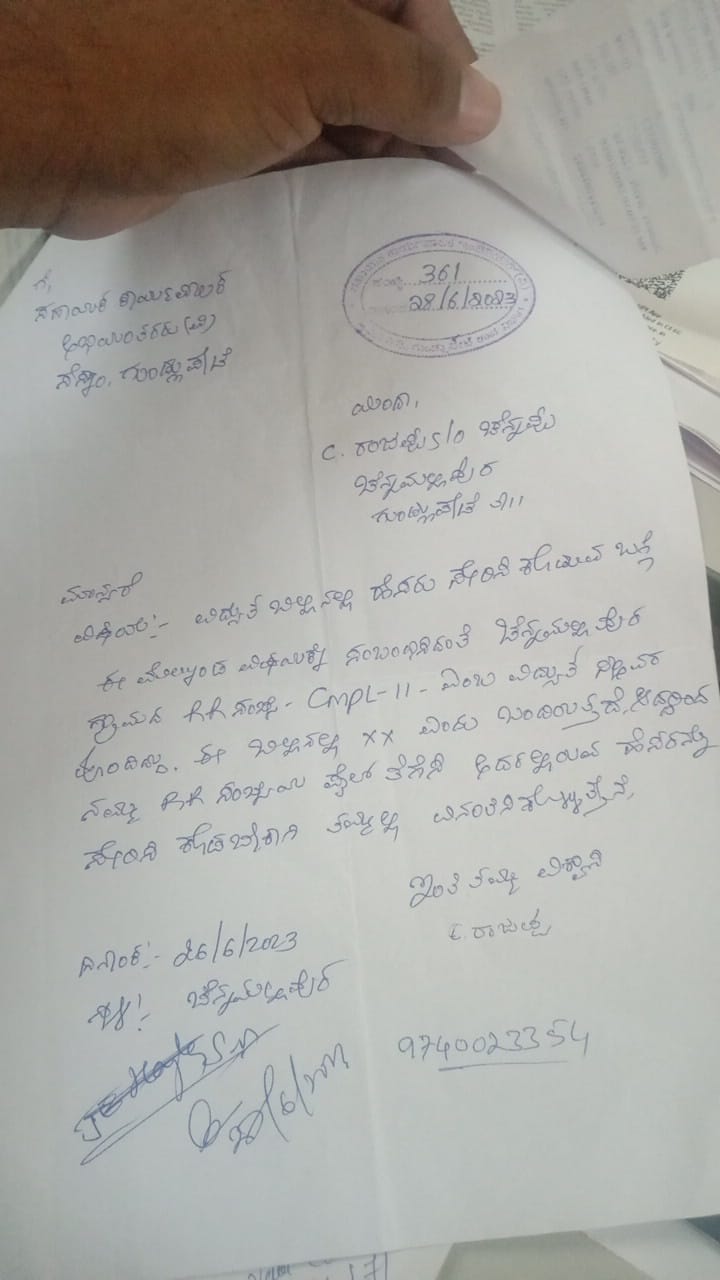 ಗೆ,
ಸಹಾಯಕ ಕಾರ್ಯಪಾಲಕ
ಅಭಿಯಂತರರು (ವಿ)
ಸೆಸ್ಕಾಂ, ಗುಂಡ್ಲುಪೇಟೆ
361
28/6/2023
ಯಿಂದಾ,
C. ರಾಜಪ್ಪ S/O ಚೆನ್ನಪ್ಪ
ಚೆನ್ನಮಲ್ಲಿಪುರ
ಗುಂಡ್ಲುಪೇಟೆ ತಾ||
ಮಾನ್ಯರೆ
ವಿಷಯ:- ವಿದ್ಯುತ್ ಬಿಲ್ಲಿನಲ್ಲಿ ಹೆಸರು ಸೇರಿಸಿ ಕೊಡುವ ಬಗ್ಗೆ
ಈ ಮೇಲ್ಕಂಡ ವಿಷಯಕ್ಕೆ ಸಂಬಂಧಿಸಿದಂತೆ ಚೆನ್ನಮಲ್ಲಿಪುರ
ಗ್ರಾಮದ RR ಸಂಖ್ಯೆ - CMPL-11 - ಎಂಬ ವಿದ್ಯುತ್
ಹೊಂದಿದ್ದು. ಈ ಬಿಲ್ಲಿನಲ್ಲಿ XX ಎಂದು ಬಂದಿರುತ್ತದೆ. ಆದ್ದರಿಂದ
ನಮ್ಮ RR ಸಂಖ್ಯೆಯ ಫೈಲ್ ತೆಗೆಸಿ ಅದರಲ್ಲಿರುವ ಹೆಸರನ್ನು
ಸೇರಿಸಿ ಕೊಡಬೇಕಾಗಿ ತಮ್ಮಲ್ಲಿ ವಿನಂತಿಸಿಕೊಳ್ಳುತ್ತೇನೆ.
ಇಂತಿ ತಮ್ಮ ವಿಶ್ವಾಸಿ
C. ರಾಜಪ್ಪ
ದಿನಾಂಕ:- 26/6/2023
ಸ್ಥಳ:- ಚೆನ್ನಮಲ್ಲಿಪುರ
9740023354